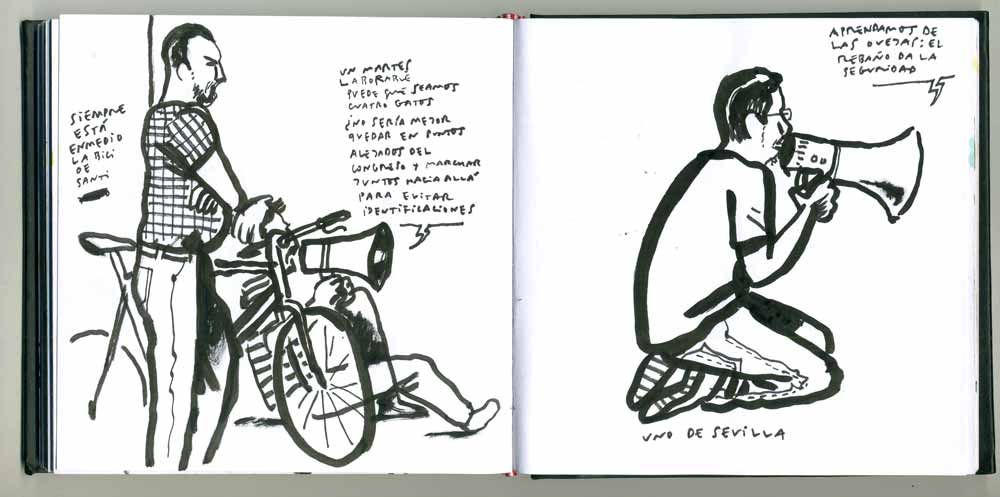 SIEMPRE
ESTÁ
ENMEDIO
LA BICI
DE
SANTI
UN MARTES
LABORABLE
PUEDE QUE SEAMOS
CUATRO GATOS
¿NO SERÍA MEJOR
QUEDAR EN PUNTOS
ALEJADOS DEL
CONGRESO Y MARCHAR
JUNTOS HACIA ALLÁ
PARA EVITAR
IDENTIFICACIONES
APRENDAMOS DE
LAS OVEJAS: EL
REBAÑO DA LA
SEGURIDAD
UNO DE SEVILLA